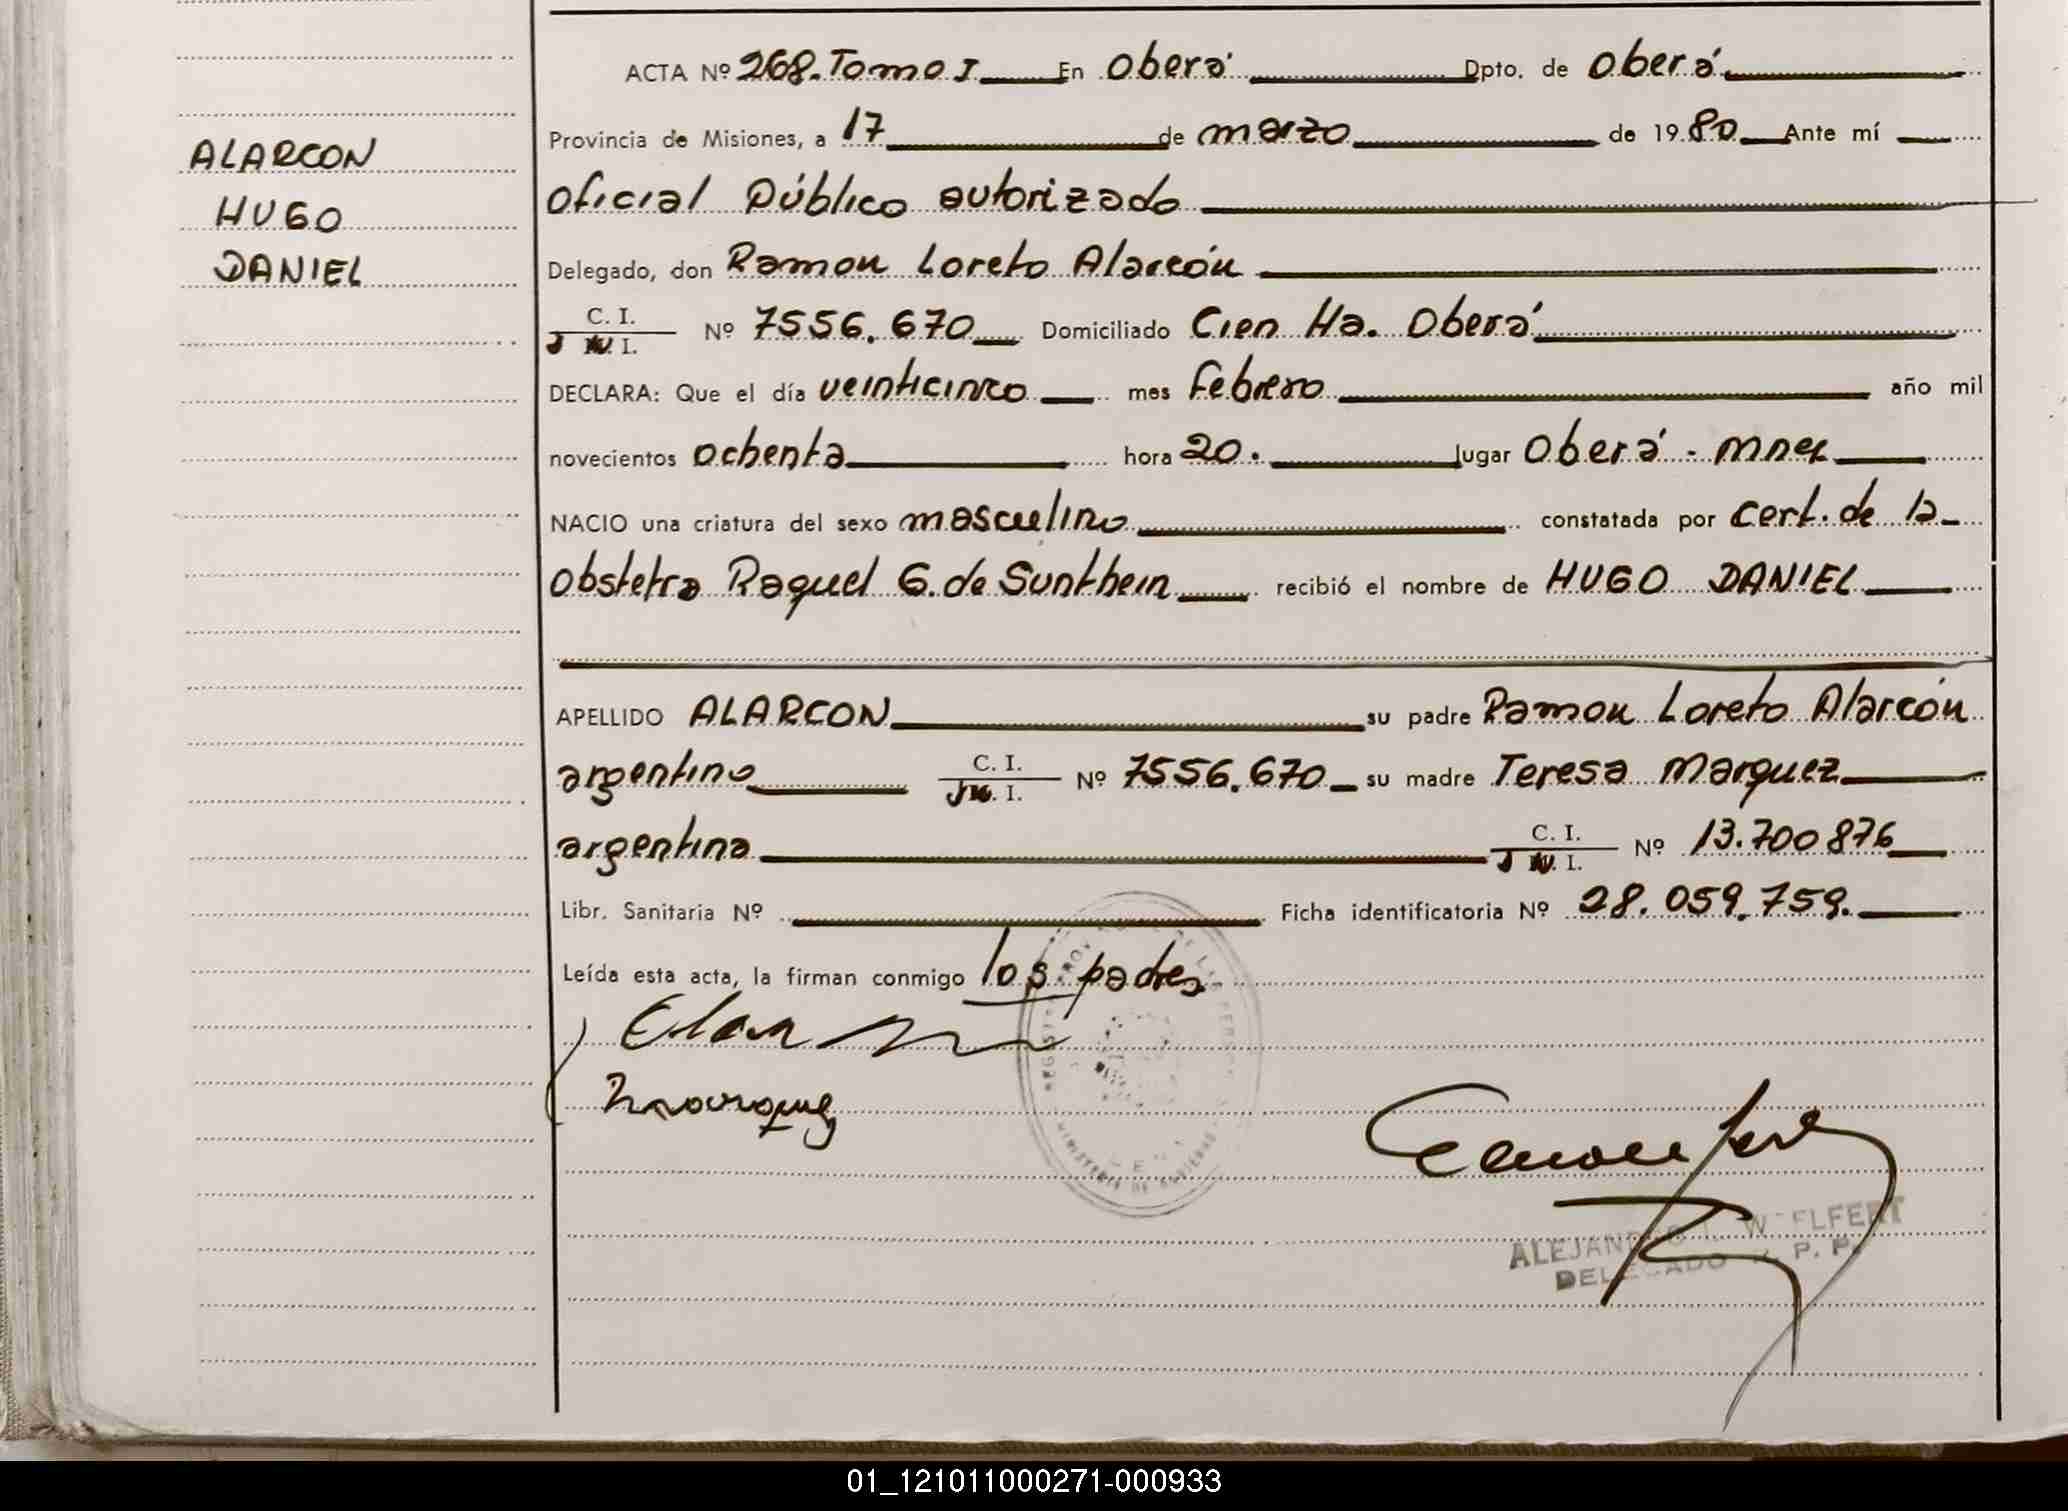 ALARCON
HUGO
DANIEL
ACTA Nº 268. Tomo I En Oberá Dpto. de Oberá
Provincia de Misiones, a 17 de marzo de 1980 Ante mí
Oficial Público autorizado
Delegado, don Ramon Loreto Alarcón
C. I.
M. I. Nº 7556.670 Domiciliado Cien Ha. Oberá
DECLARA: Que el día veinticinco mes Febrero año mil
novecientos ochenta hora 20. lugar Oberá - Mnes
NACIO una criatura del sexo masculino constatada por cert. de la
Obstetra Raquel G. de Sunthein recibió el nombre de HUGO DANIEL
APELLIDO ALARCON su padre Ramon Loreto Alarcón
argentino C. I.
M. I. Nº 7556.670 su madre Teresa Marquez
argentina C. I.
M. I. Nº 13.700876
Libr. Sanitaria Nº Ficha identificatoria Nº 28.059.759.
Leída esta acta, la firman conmigo los padres
Marquez
MINISTERIO DE GOBIERNO
ALEJANDRO WOELFERT
DELEGADO R. P. P.
01_121011000271-000933